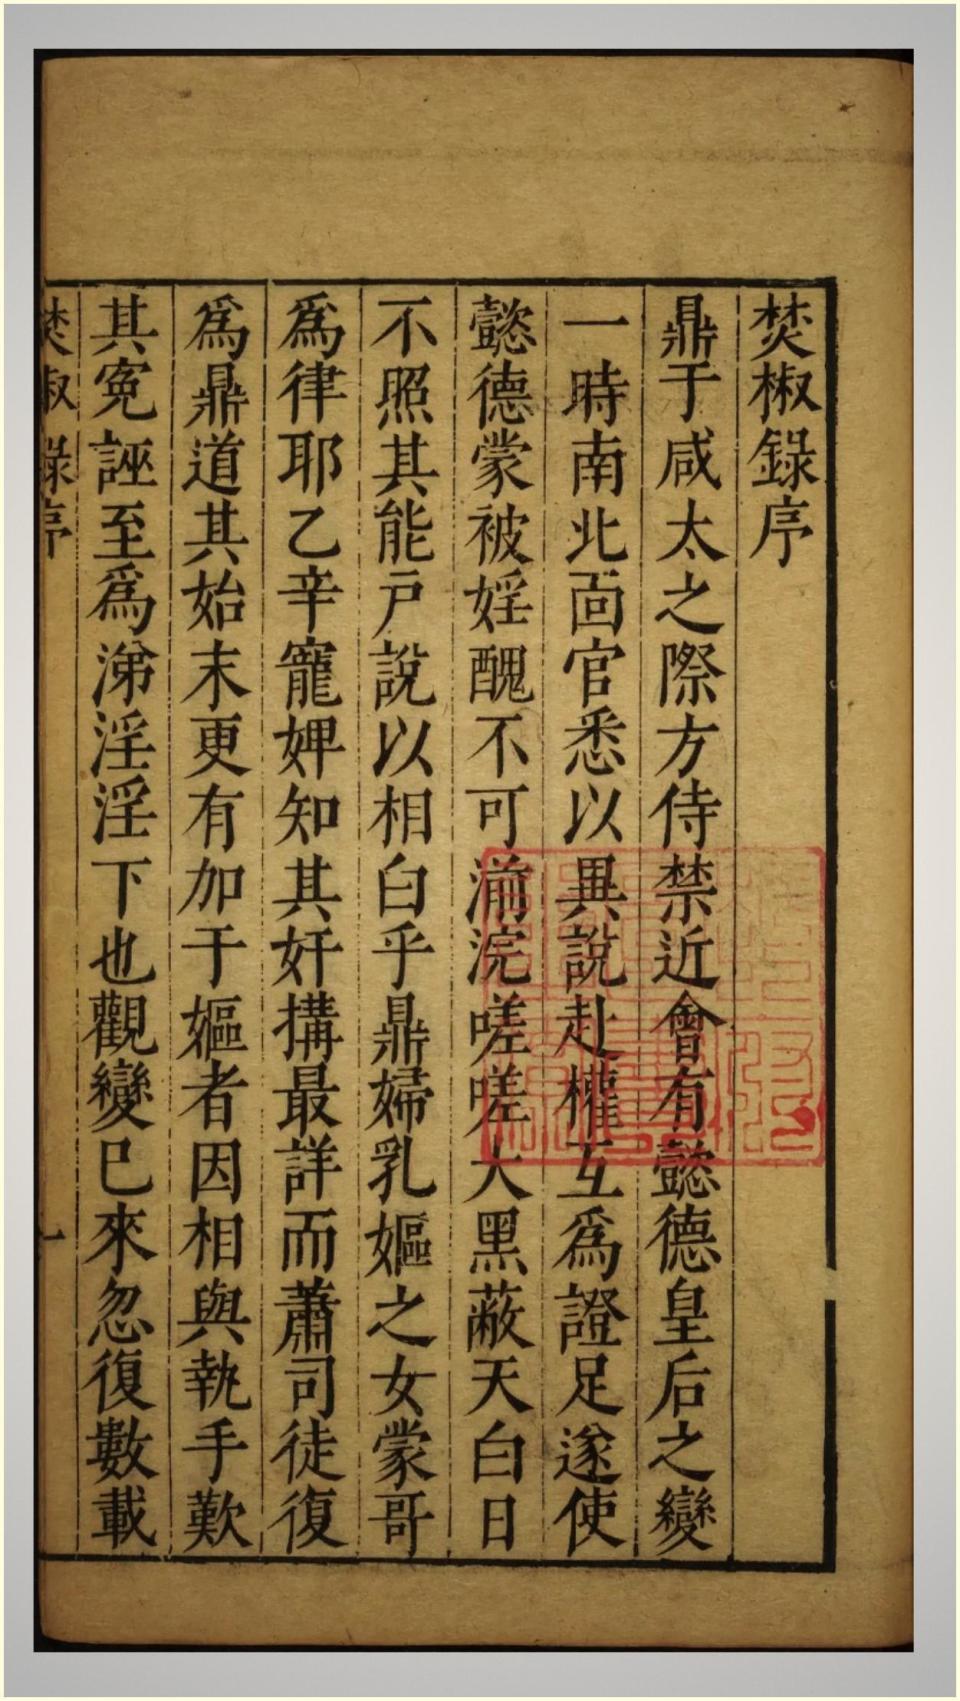 焚椒錄序
鼎于咸太之際方侍禁近會有懿德皇后之變
一時南北靣官悉以異說赴權互爲證足遂使
懿德蒙被婬醜不可湔浣嗟嗟大黑蔽天白日
不照其能戶說以相白乎鼎婦乳嫗之女蒙哥
爲律耶乙辛寵婢知其奸搆最詳而蕭司徒復
爲鼎道其始末更有加于嫗者因相與執手歎
其寃誣至爲涕淫淫下也觀變巳來忽復數載
焚椒錄序 一